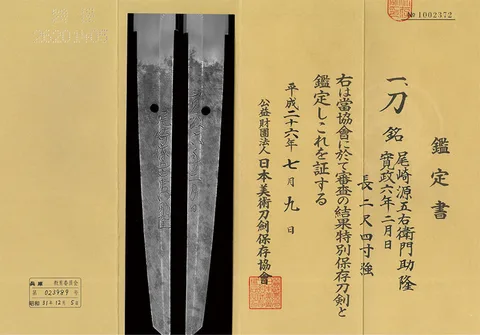 № 1002372
鑑定書
一、刀 銘 尾崎源五右衛門助隆
寛政六年二月日
長二尺四寸強
右は當協會に於て審査の結果特別保存刀剣と
鑑定しこれを証する
平成二十六年七月九日
公益財團法人 日本美術刀剣保存協會
兵庫 教育委員会
第 023989 号
昭和 31年12月5日